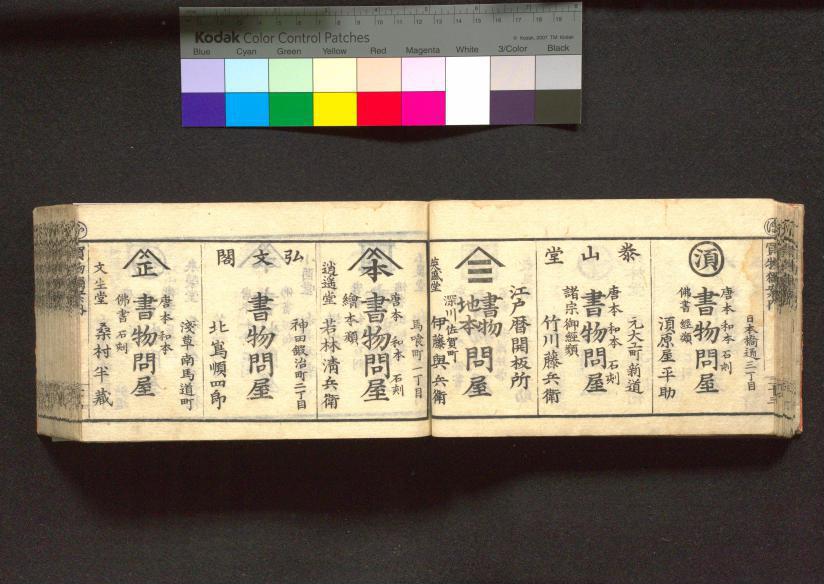 Kodak Color Control Patches
© Kodak, 2007 TM: Kodak
Blue Cyan Green Yellow Red Magenta White 3/Color Black
日本橋通二丁目
唐本 和本 石刻
須
書物問屋
佛書 經類
須原屋平助
元大工町新道
泰山堂
唐本 和本 石刻
書物問屋
諸宗御經類
竹川藤兵衛
江戸暦開板所
三
書物
地本
問屋
深川佐賀町
英盛堂
伊藤與兵衛
馬喰町一丁目
唐本 和本 石刻
本
書物問屋
繪本類
逍遥堂
若林清兵衛
神田鍛治町二丁目
弘文閣
書物問屋
北嶌順四郎
淺草南馬道町
唐本 和本
正
書物問屋
佛書 石刻
文生堂
桑村半蔵